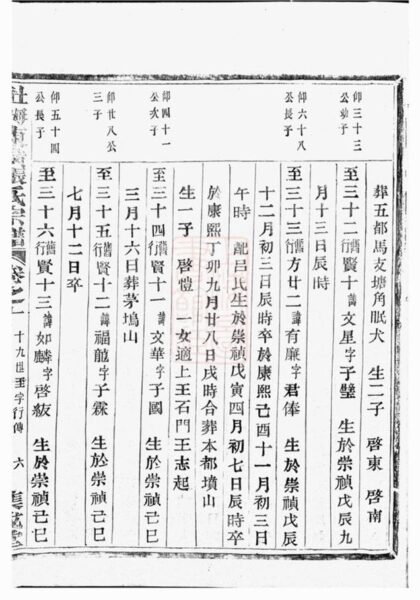 葬五都馬支塘角眠犬　生二子　啓東　啓南
仰三十三公幼子
至三十二舊行賢十諱文星字子璧　生於崇禎戊辰九
月十三日辰時
仰六十八公長子
至三十三舊行方廿二諱有廉字君俸　生於崇禎戊辰
十二月初三日辰時卒於康熙己酉十一月初三日
午時　配呂氏生於崇禎戊寅四月初七日辰時卒
於康熙丁卯九月廿八日戌時合葬本都墳山
生一子　啓愷　一女適上王石門王志起
仰四十一公次子
至三十四舊行賢十一諱文華字子國　生於崇禎己巳
三月十六日葬茅塢山
仰廿八公三子
至三十五舊行賢十二諱福龍字子霖　生於崇禎己巳
七月十二日卒
仰五十四公長子
至三十六舊行賢十三諱如麟字啓紱　生於崇禎己巳
氏宗譜　卷之一　十九世至字行傳　六